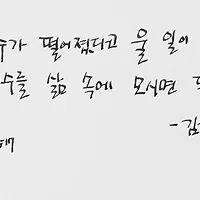 수가 떨어졌다고 울 일이
수를 삶 속에 모시면
-김